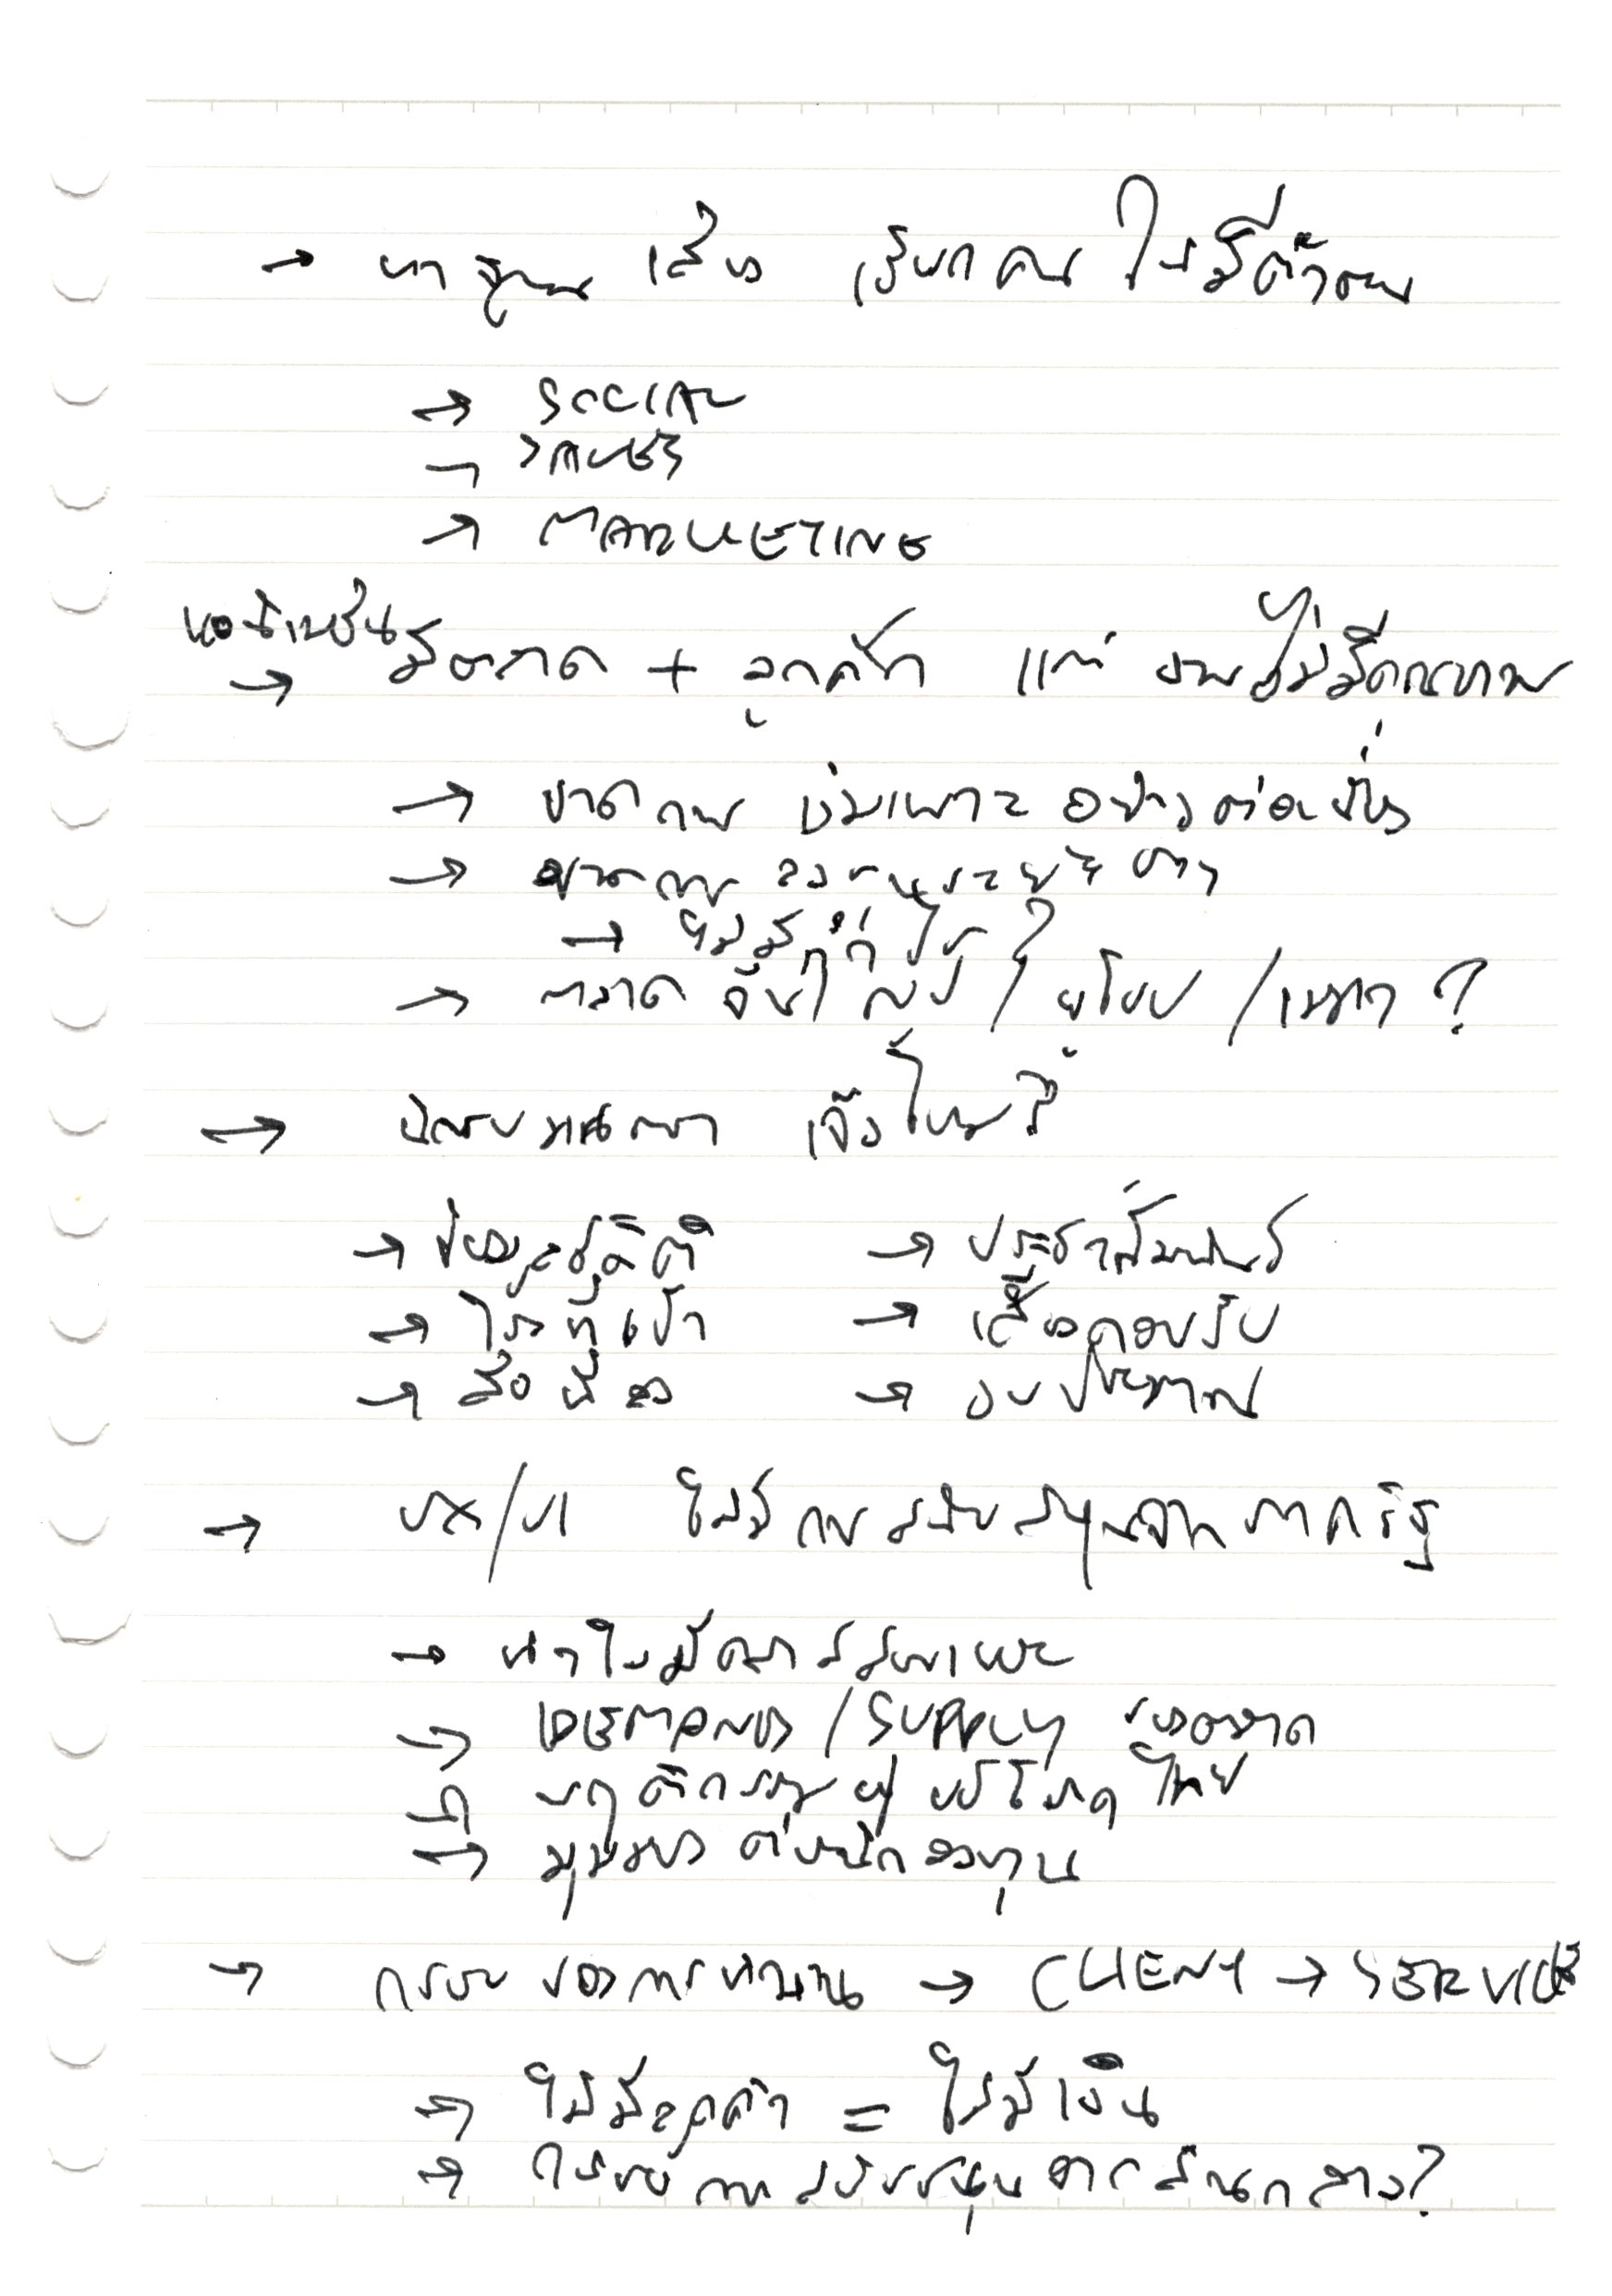 → หาฐาน เสียง เรียกคน ให้มีตัวตน
→ SOCIAL
→ SALES
→ MARKETING
หอนิเมชัน
→ มีตลาด + ลูกค้า แต่ งานไม่มีคุณภาพ
→ ขาดการ บ่มเพาะ อย่างต่อเนื่อง
→ ขาดการ ลงทุนระยะยาว
→ ไม่มี
→ ตลาด จีน / ยุโยป / เมกา ?
→
→ ข้อมูลสถิติ → ประชาสัมพันธ์
→ ใครที่เข้า → เสียงตอบรับ
→ สื่อ → งบประมาณ
→ UX/UI ไม่มีการสนับสนุนจากภาครัฐ
→ ทำให้มีคน
→ DEMAND / SUPPLY ของตลาด
→ พฤติกรรมผู้บริโภค ไทย
→ มุมมอง ต่อนักลงทุน
→ กรอบ ของการทำงาน → CLIENT → SERVICE
→ ไม่มีลูกค้า = ไม่มีเงิน
→ การสนับสนุน จาก ?